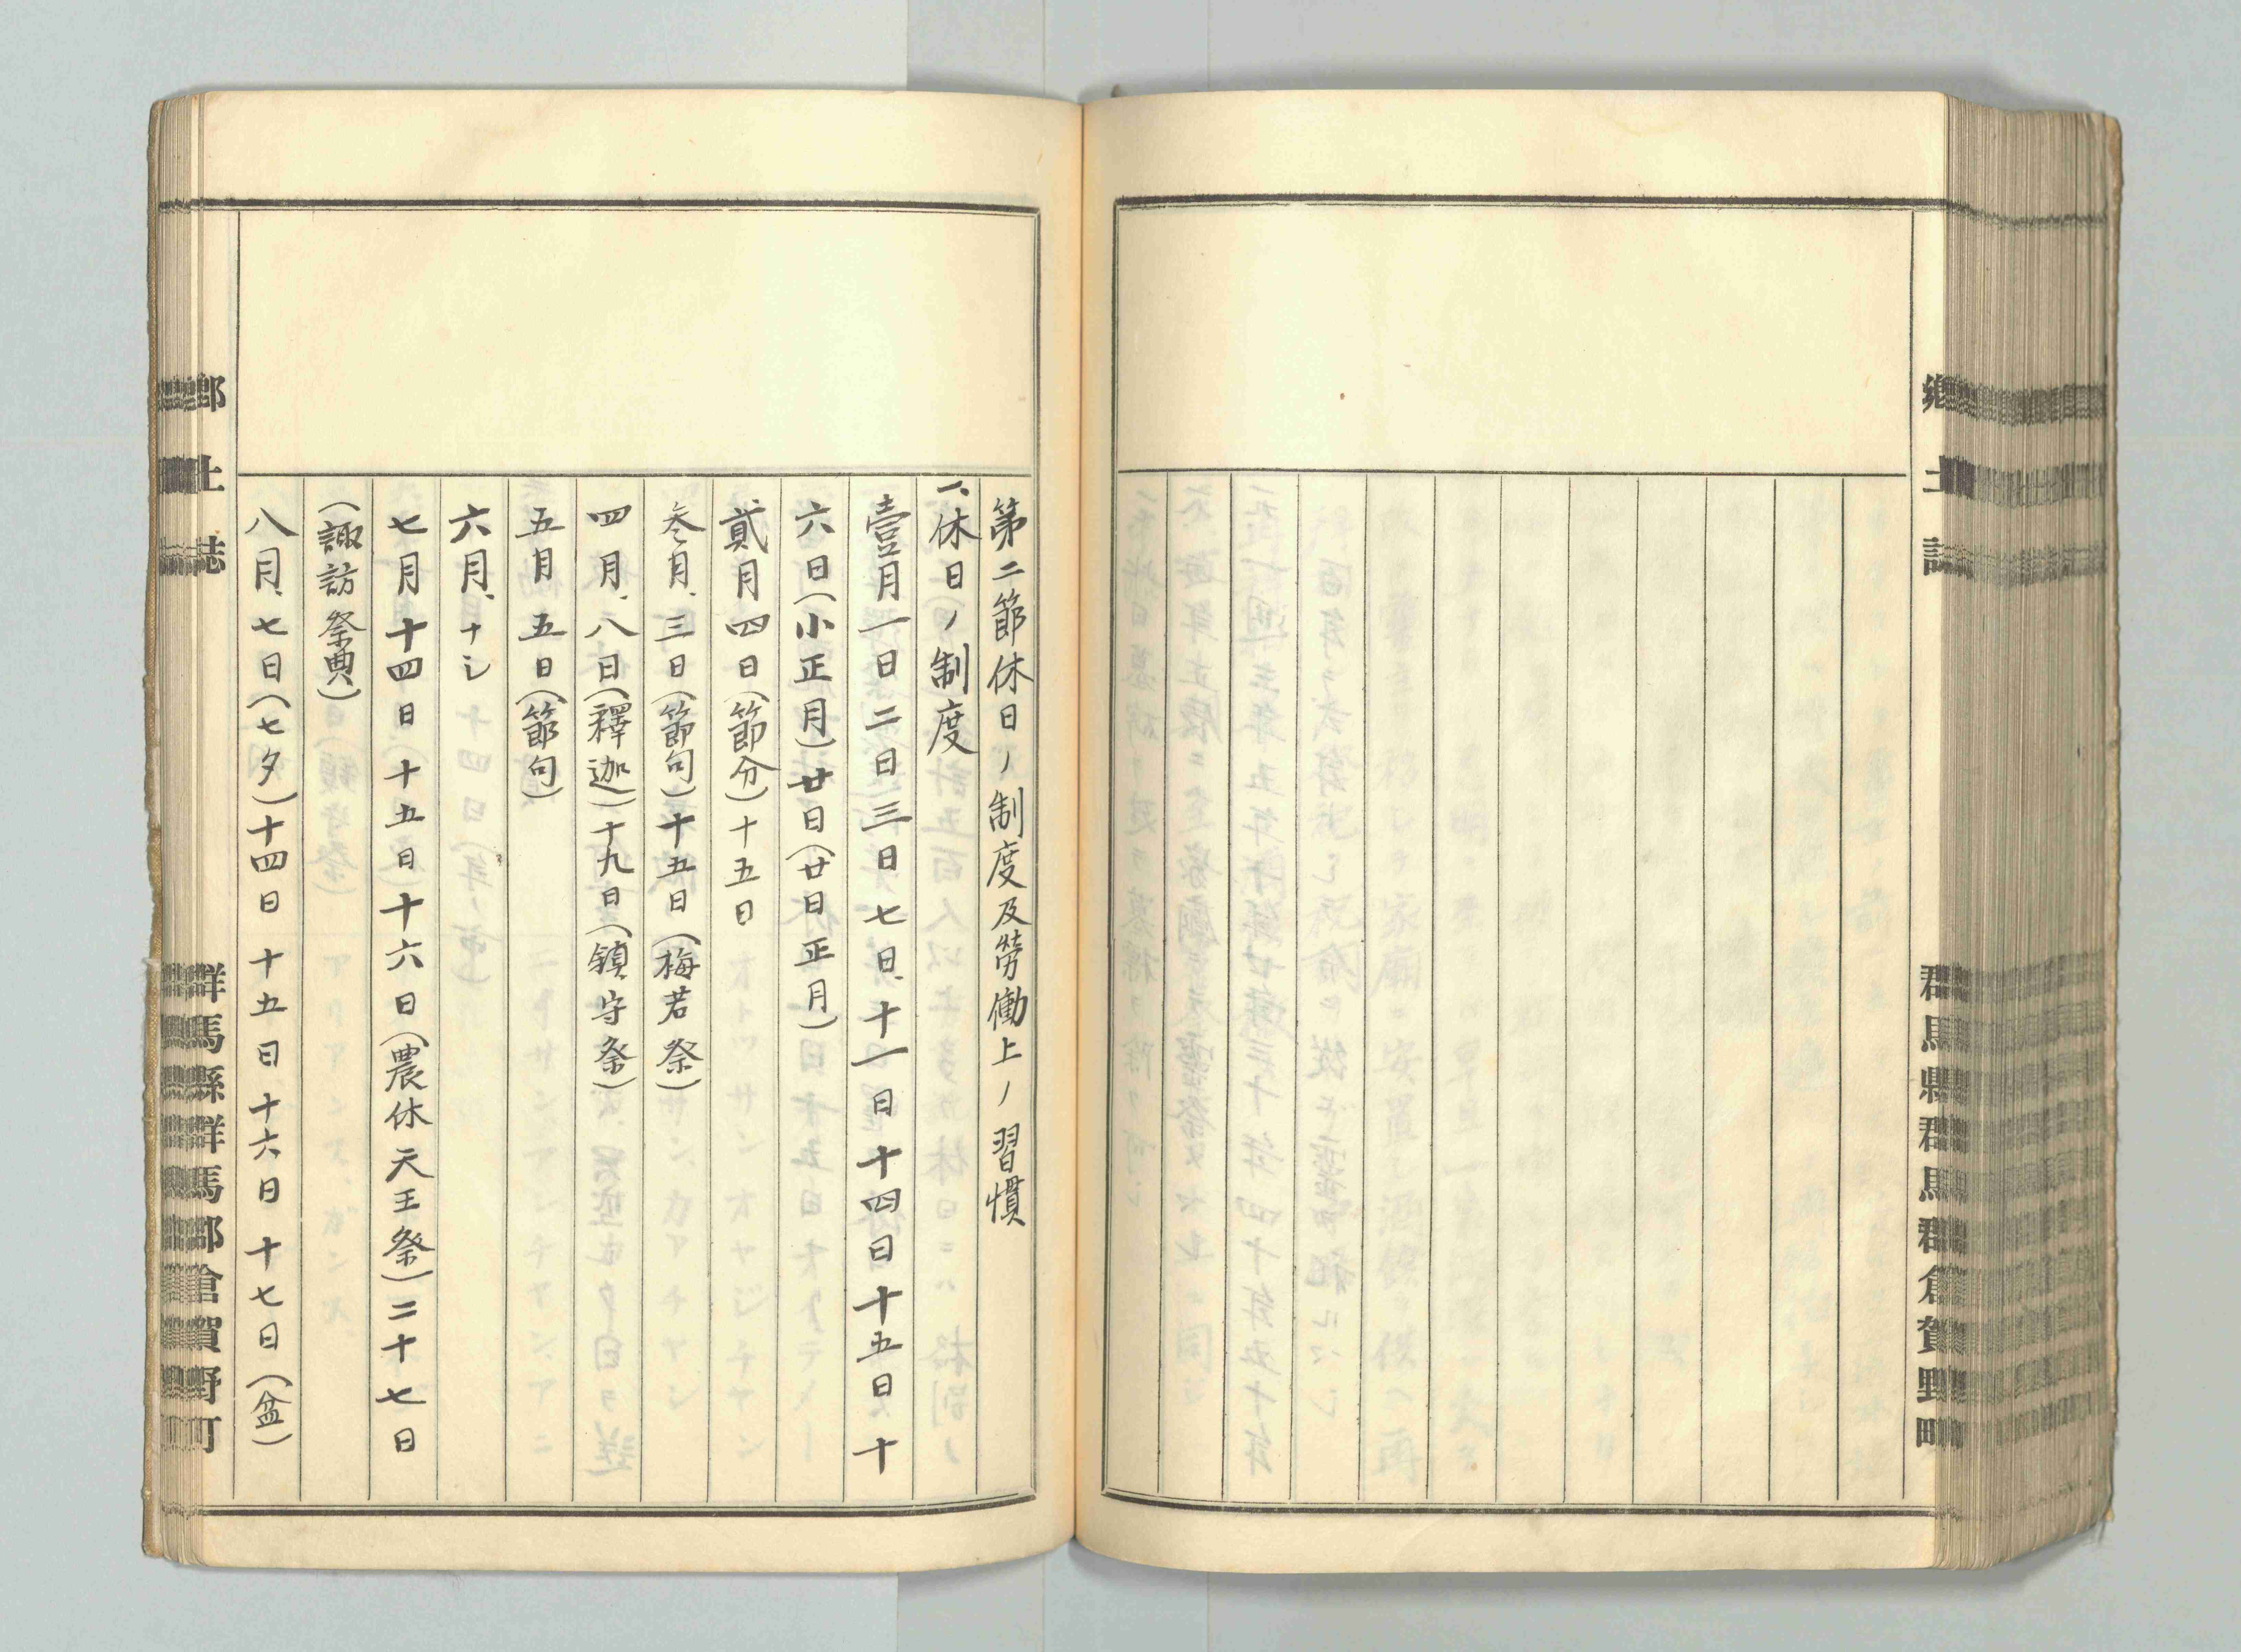 鄕土誌
群馬縣群馬郡倉賀野町
第二節休日ノ制度及勞働上ノ習慣
一、休日ノ制度
壹月一日二日三日七日、十一日十四日十五日十
六日(小正月)廿日(廿日正月)
貳月四日(節分)十五日
叁月、三日(節句)十五日(梅若祭)
四月、八日(釋迦)十九日(鎮守祭)
五月五日(節句)
六月、ナシ
七月十四日十五日十六日(農休天王祭)二十七日
(諏訪祭典)
八月、七日(七夕)十四日十五日十六日十七日(盆)
鄕土誌
群馬縣群馬郡倉賀野町